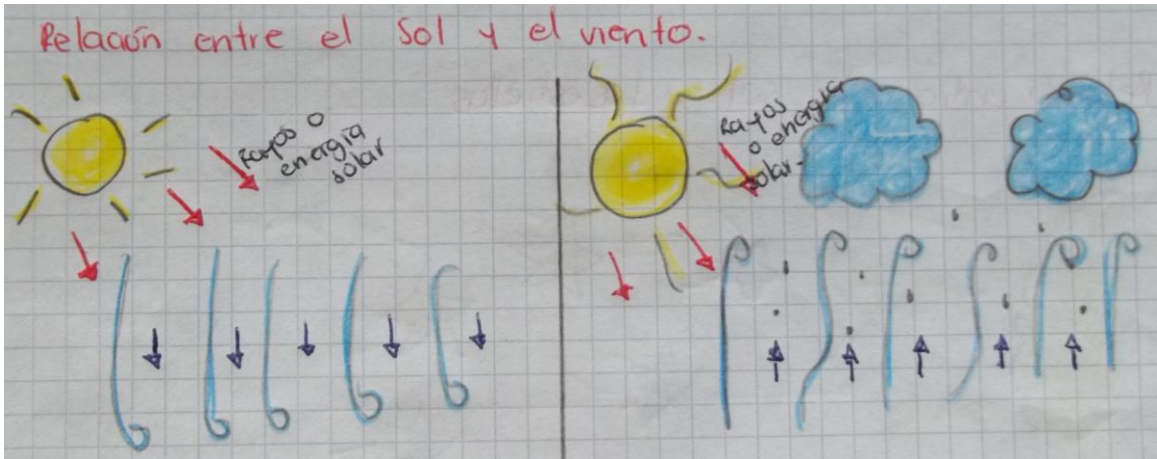 Relación entre el Sol y el viento.
Rayos o
energía
solar
Rayos
o energía
solar.